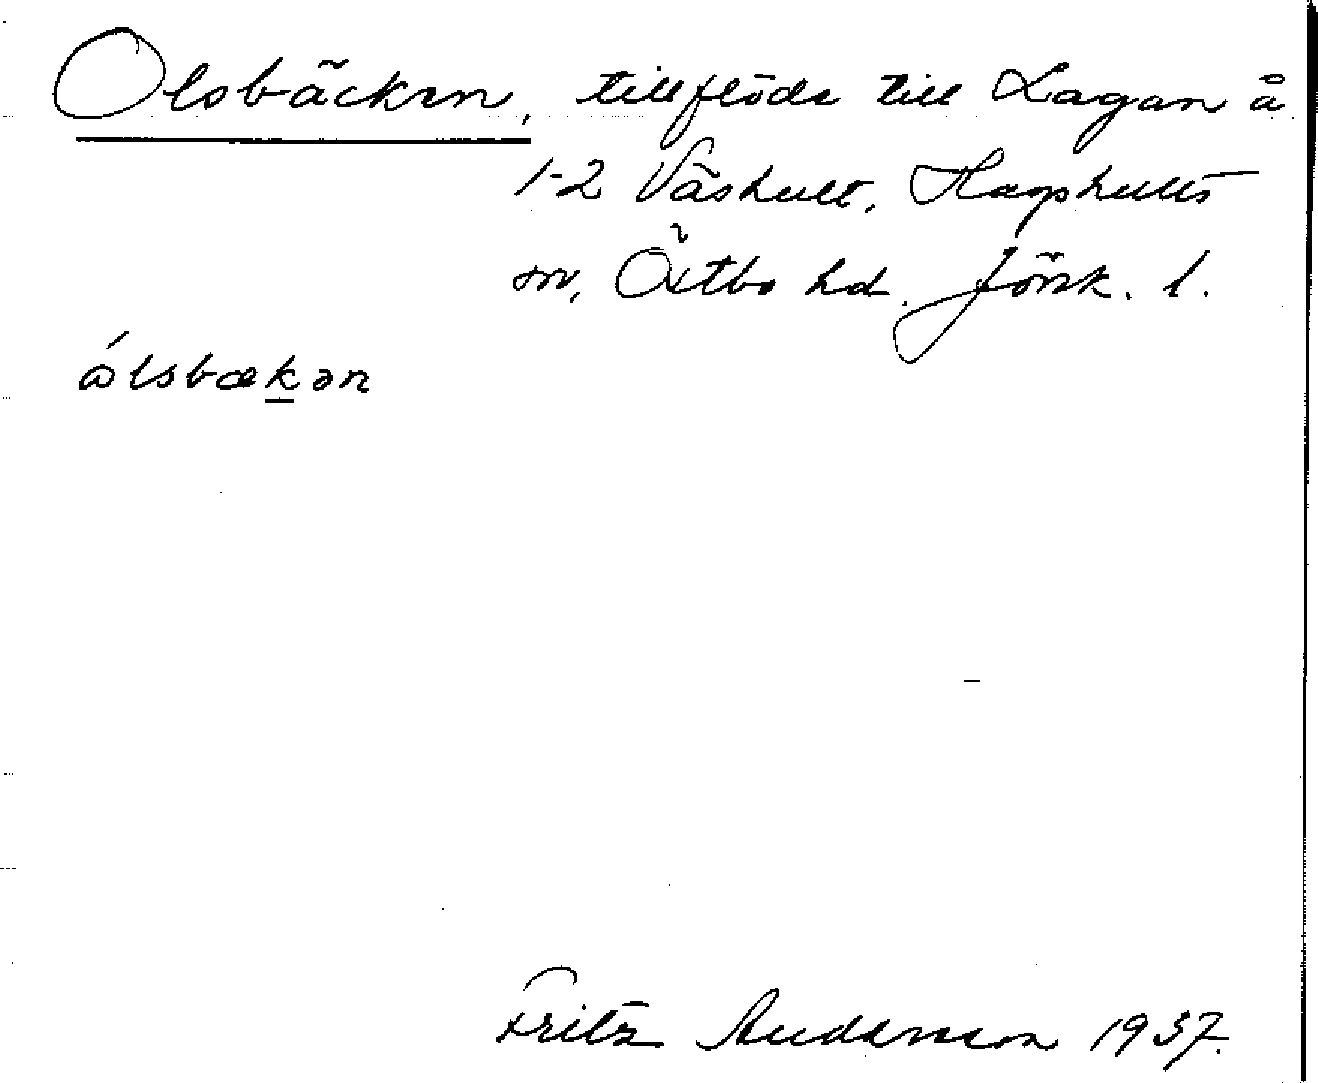 Olsbäcken, tillflöde till Lagan å
1-2 Våshult, Hagshults
sn, Östbo hd. Jönk. l.
ålsbækən
Fritz Anderson 1937.